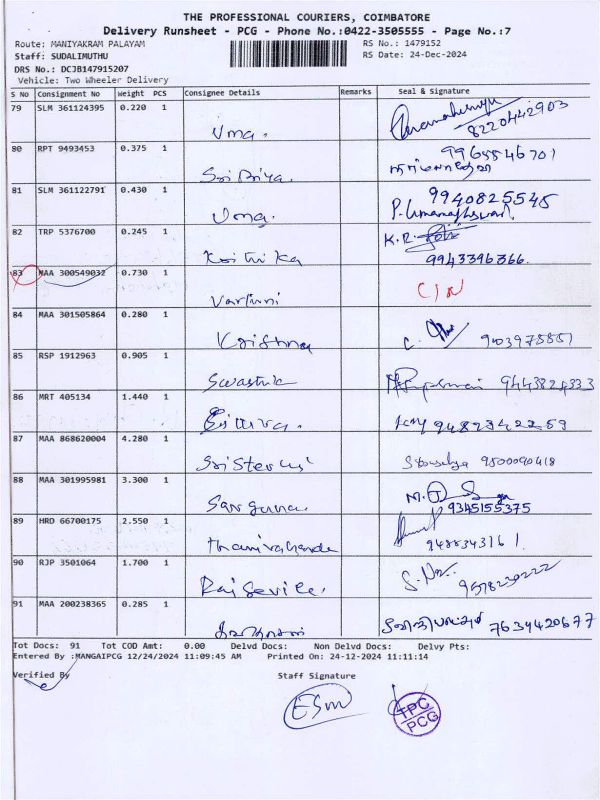 THE PROFESSIONAL COURIERS, COIMBATORE
Delivery Runsheet - PCG - Phone No.:0422-3505555 - Page No.:7
Route: MANIYAKRAM PALAYAM RS No.: 1479152
Staff: SUDALIMUTHU RS Date: 24-Dec-2024
DRS No.: DCJB147915207
Vehicle: Two Wheeler Delivery
S No Consignment No Weight PCS Consignee Details Remarks Seal & Signature
79 SLM 361124395 0.220 1 Uma. 8220442903
80 RPT 9493453 0.375 1 Sri Priya. 9965546701
81 SLM 361122791 0.430 1 Uma. 9940825545
P. Umamaheswari
82 TRP 5376700 0.245 1 Krithika K.R. 9943396366.
83 MAA 300549032 0.730 1 Varshini C/N
84 MAA 301505864 0.280 1 Krishna C. 9003975851
85 RSP 1912963 0.905 1 Swastik 9443824333
86 MRT 405134 1.440 1 9482342259
87 MAA 868620004 4.280 1 9500090418
88 MAA 301995981 3.300 1 Sanguna. M. 9345155375
89 HRD 66700175 2.550 1 9488343161.
90 RJP 3501064 1.700 1 S. 9578230222
91 MAA 200238365 0.285 1 7639420677
Tot Docs: 91 Tot COD Amt: 0.00 Delvd Docs: Non Delvd Docs: Delvy Pts:
Entered By :MANGAIPCG 12/24/2024 11:09:45 AM Printed On: 24-12-2024 11:11:14
Verified By Staff Signature
ESM
TPC
PCG